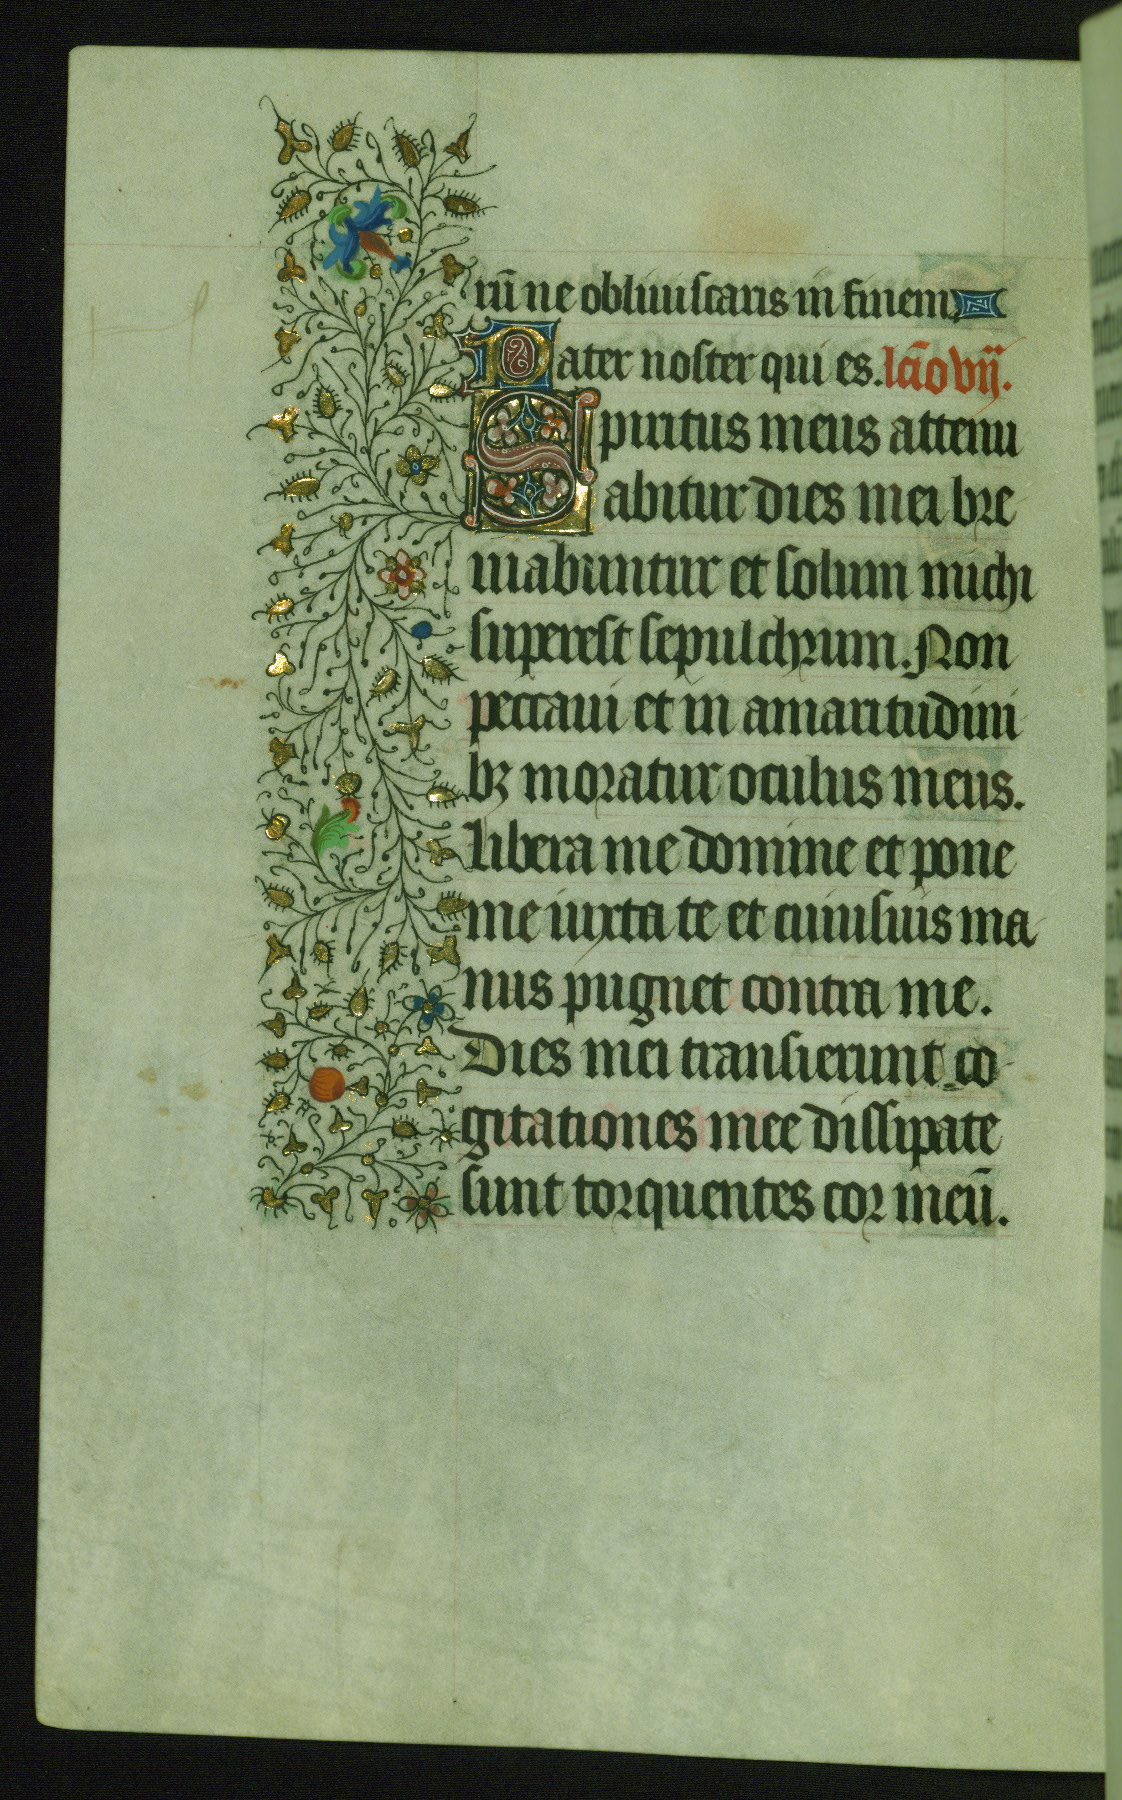 rū ne obliuiscaris in finem
Pater noster qui es. lc̄o vij.
Spiritus meus attenu
abitur dies mei bre
uiabuntur et solum michi
superest sepulchrum. Non
peccaui et in amaritudini
bꝫ moratur oculus meus.
Libera me domine et pone
me iuxta te et cuiusuis ma
nus pugnet contra me.
Dies mei transierunt co
gitationes mee dissipate
sunt torquentes cor meū.